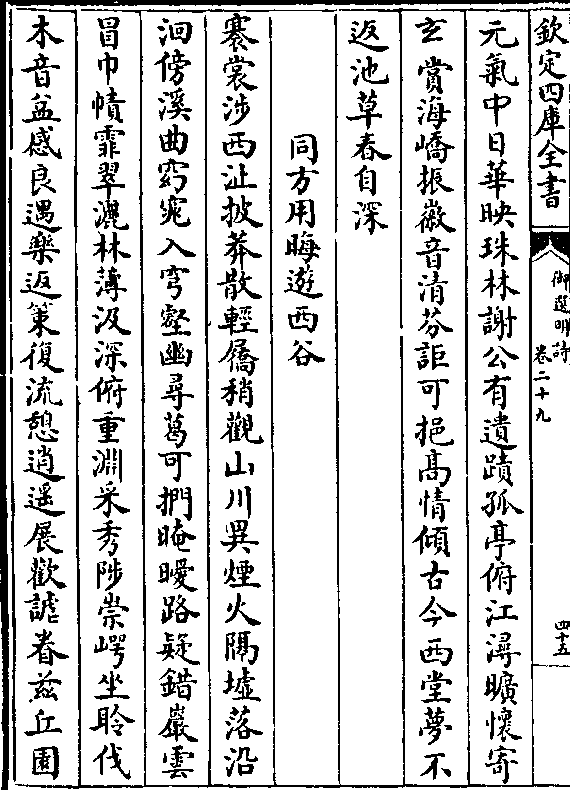 欽定四庫全書
御選明詩
卷二十九
四十五
元氣中日華映珠林謝公有遺蹟孤亭俯江潯曠懷寄
玄賞海嶠振徽音清芬詎可挹髙情傾古今西堂夢不
返池草春自深
同方用晦遊西谷
褰裳涉西沚披莽散輕屩稍觀山川異煙火隔墟落沿
洄傍溪曲窈窕入穹壑幽尋葛可捫晻曖路疑錯巖雲
冒巾幘霏翠灑林薄汲深俯重淵采秀陟崇崿坐聆伐
木音益感良遇樂返策復流憩逍遥展歡謔眷兹丘園